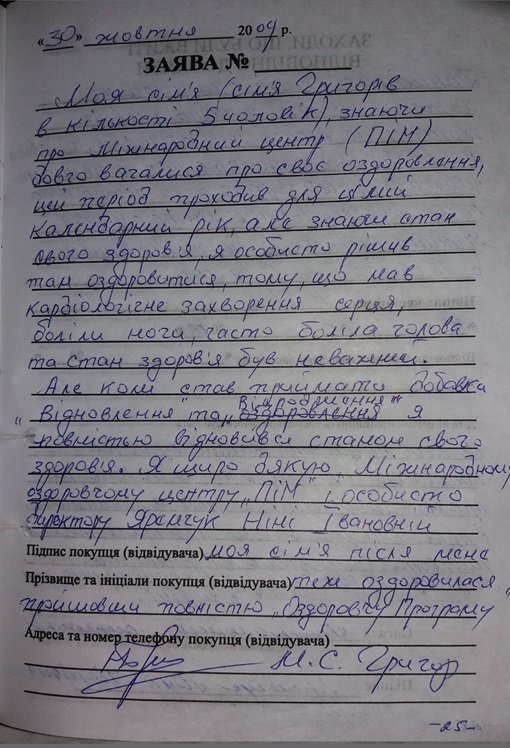 «30» жовтня 2009 р.
ЗАЯВА №
Моя сім'я (сім'я Григорів
в кількості 5 чоловік), знаючи
про Міжнародний центр (ПІМ)
довго вагалися про своє оздоровлення,
цей період проходив для цілий
календарний рік, але знаючи стан
свого здоров'я, я особисто рішив
там оздоровитися, тому, що мав
кардіологічне захворення серця,
боліли нога, часто боліла голова
та стан здоров'я був неважний.
Але коли став приймати добавки
Відродження"
„Відновлення" та „оздоровлення я
повністью відновився станом свого
здоров'я. Я щиро дякую Міжнародному
оздоровчому центру „ПІМ" і особисто
директору Яремчук Ніні Івановній
Підпис покупця (відвідувача) моя сім'я після мене
Прізвище та ініціали покупця (відвідувача) теж оздоровилася
пройшовши повністю „Оздоровчу Програму"
Адреса та номер телефону покупця (відвідувача)
М. С. Григор
-25-